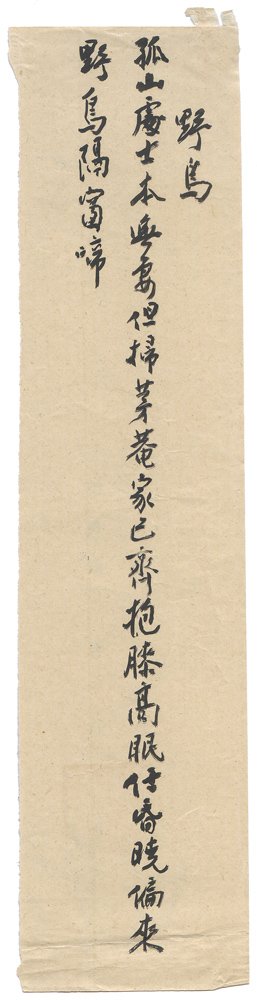 野鳥
孤山處士本無妻但掃茅菴家已齊抱膝高眠付昏曉偏來
野鳥隔窗啼